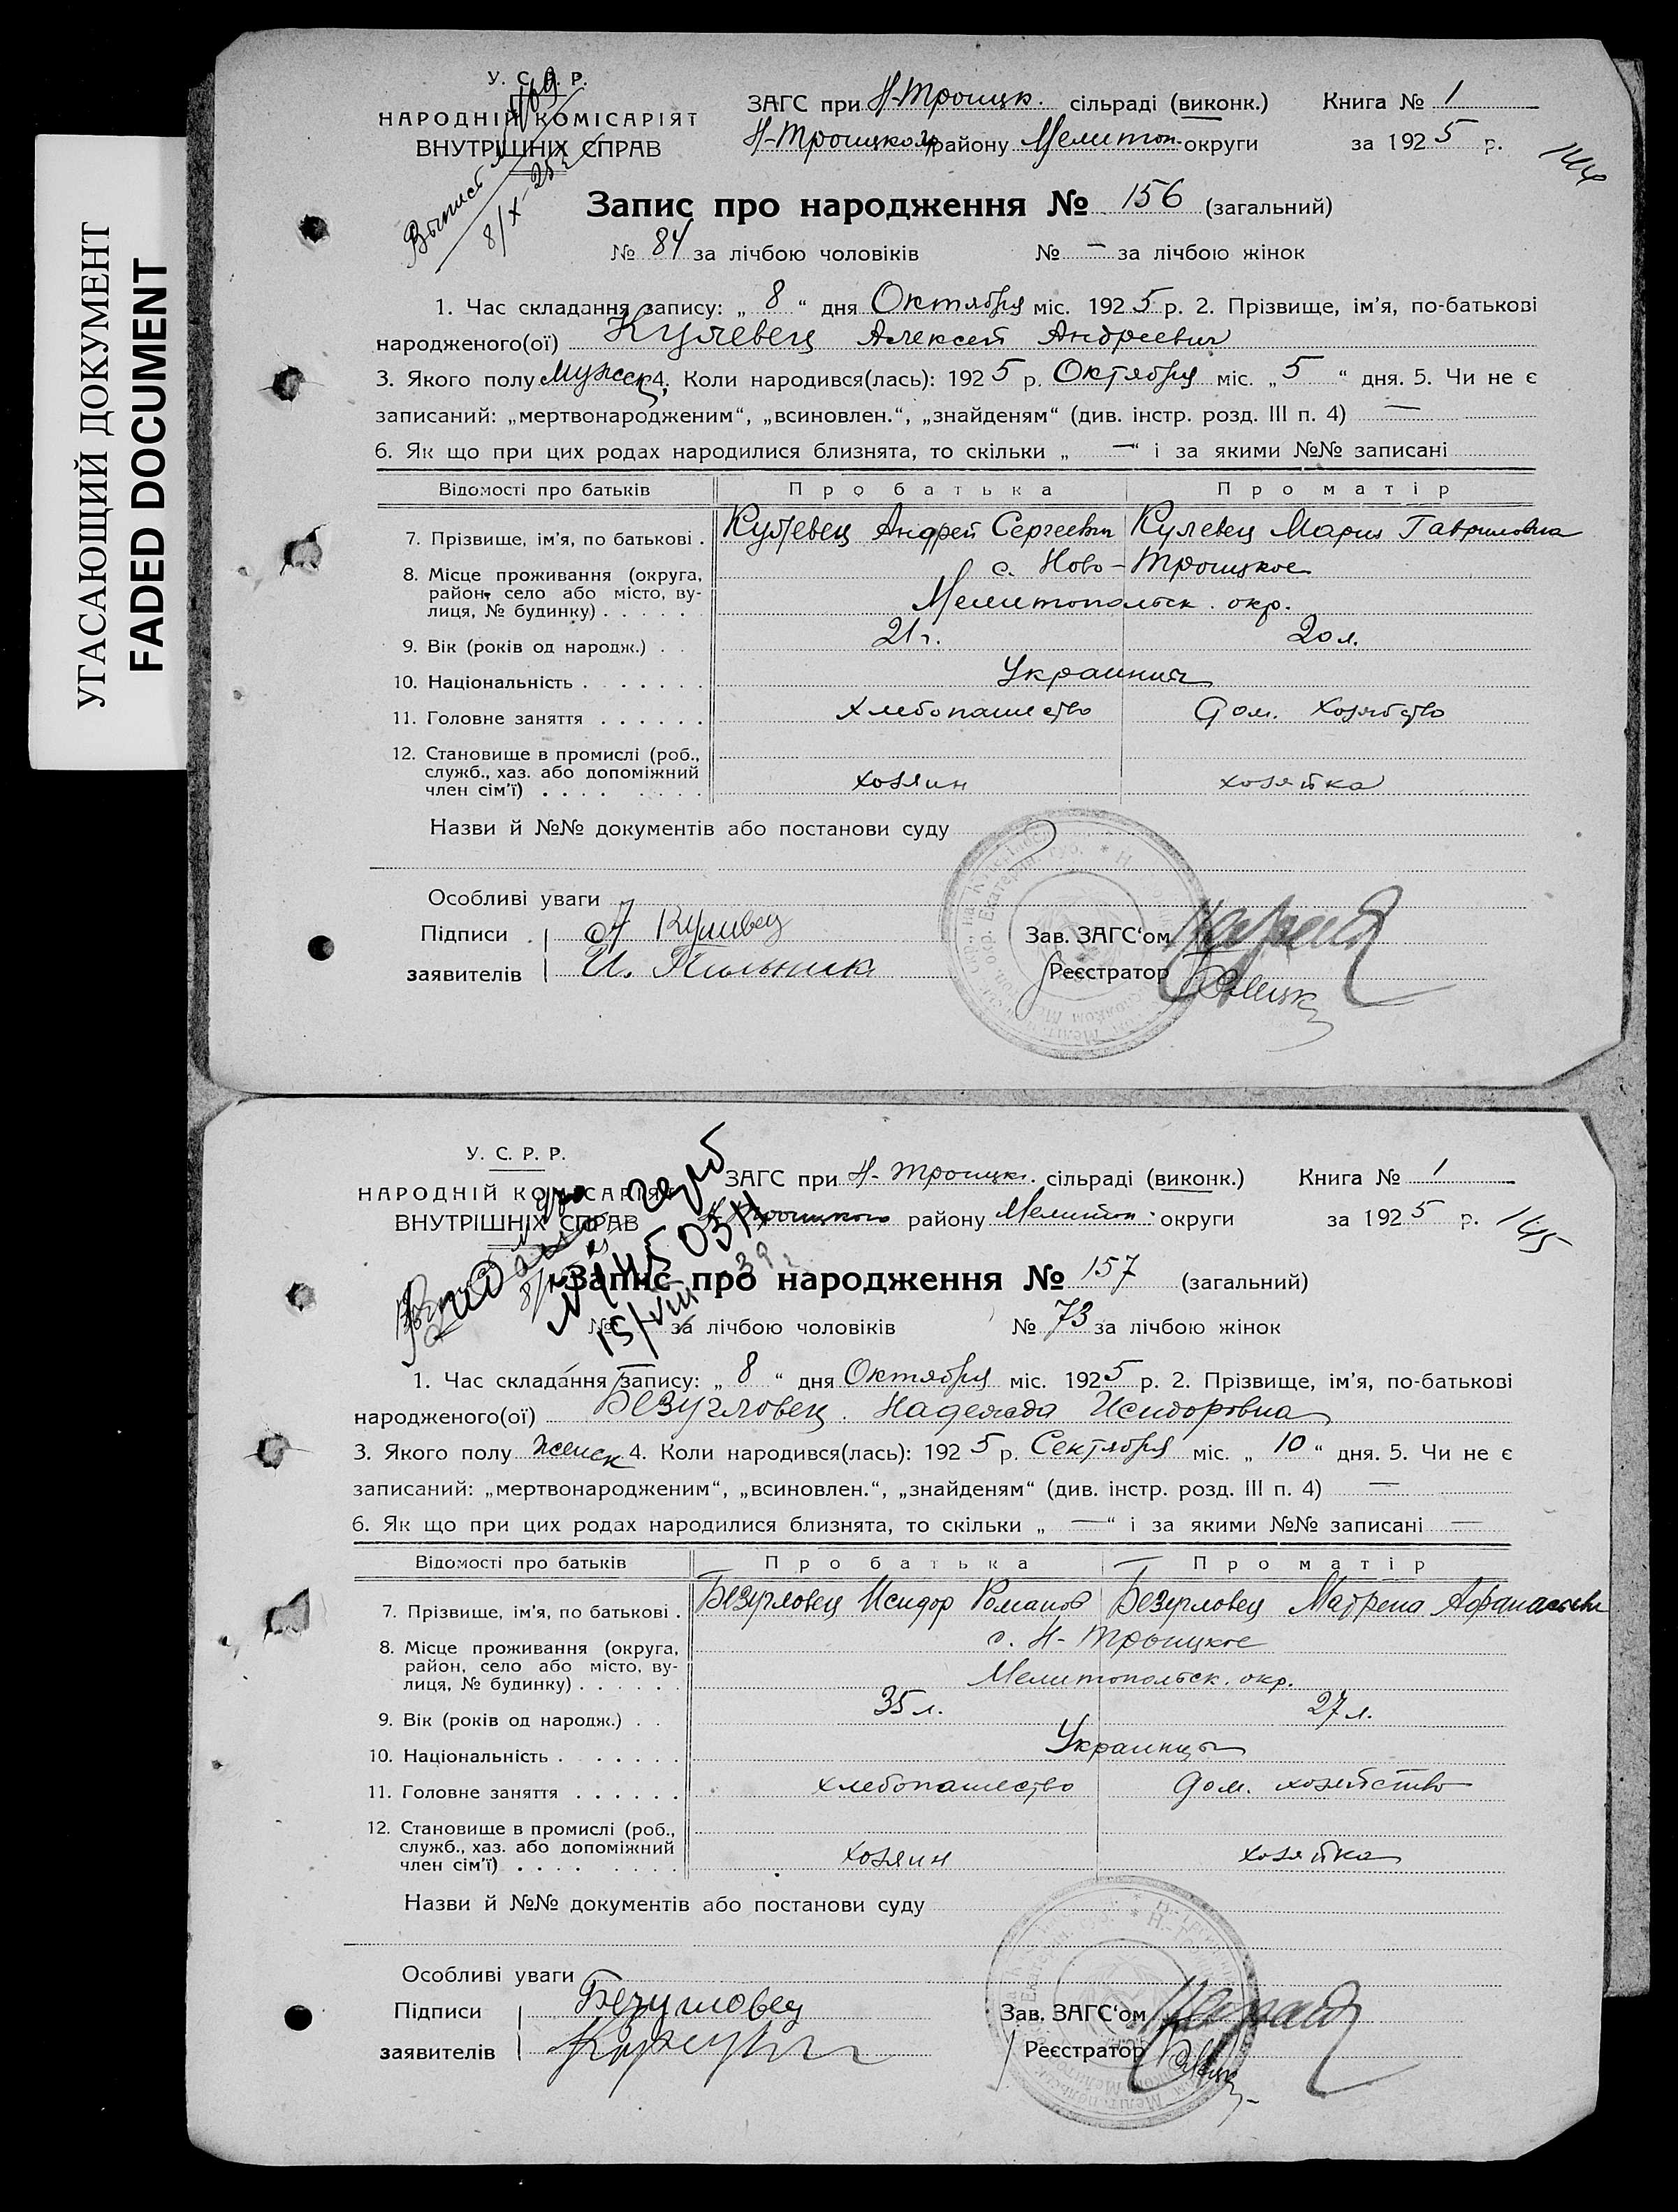 УГАСАЮЩИЙ ДОКУМЕНТ
FADED DOCUMENT
У. С. Р. Р.
НАРОДНІЙ КОМІСАРІЯТ
ВНУТРІШНІХ СПРАВ
ЗАГС при Н-Троицк. сільраді (виконк.) Книга № 1
Н-Троицком району Мелитоп. округи за 1925 р.
144
8/X-25г
Запис про народження № 156 (загальний)
№ 84 за лічбою чоловіків № — за лічбою жінок
1. Час складання запису: „ 8 “ дня Октября міс. 1925 р. 2. Прізвище, ім’я, по-батькові
народженого(ої) Кулевец Алексей Андреевич
3. Якого полу Мужск. 4. Коли народився(лась): 1925 р. Октября міс. „ 5 “ дня. 5. Чи не є
записаний: „мертвонародженим“, „всиновлен.“, „знайденям“ (див. інстр. розд. III п. 4) —
6. Як що при цих родах народилися близнята, то скільки „ — “ і за якими №№ записані
Відомості про батьків Про батька Про матір
7. Прізвище, ім’я, по батькові . Кулевец Андрей Сергеевич Кулевец Мария Гавриловна
8. Місце проживання (округа, с. Ново-Троицкое
район, село або місто, ву-
лиця, № будинку) . . . . . Мелитопольск. окр.
9. Вік (років од народж.) . . 21г. 20л.
10. Національність . . . . . . . Украинцы
11. Головне заняття . . . . . . Хлебопашество Дом. хозяйство
12. Становище в промислі (роб.,
служб., хаз. або допоміжний
член сім’ї) . . . . . . . . хозяин хозяйка
Назви й №№ документів або постанови суду
Особливі уваги
Підписи А Куливец
заявителів И. Пильник
Зав. ЗАГС‘ом
Реєстратор
У. С. Р. Р.
НАРОДНІЙ КОМІСАРІЯТ
ВНУТРІШНІХ СПРАВ
ЗАГС при Н-Троицк. сільраді (виконк.) Книга № 1
Н-Троицкого району Мелитоп. округи за 1925 р.
145
15/VIII 39г
Запис про народження № 157 (загальний)
№ за лічбою чоловіків № 73 за лічбою жінок
1. Час складання запису: „ 8 “ дня Октября міс. 1925 р. 2. Прізвище, ім’я, по-батькові
народженого(ої) Безугловец Надежда Исидоровна
3. Якого полу женск 4. Коли народився(лась): 1925 р. Сентября міс. „ 10 “ дня. 5. Чи не є
записаний: „мертвонародженим“, „всиновлен.“, „знайденям“ (див. інстр. розд. III п. 4) —
6. Як що при цих родах народилися близнята, то скільки „ — “ і за якими №№ записані —
Відомості про батьків Про батька Про матір
7. Прізвище, ім’я, по батькові . Безугловец Исидор Романов Безугловец Матрена Афанасьевн
8. Місце проживання (округа, с. Н-Троицкое
район, село або місто, ву-
лиця, № будинку) . . . . . . Мелитопольск. окр.
9. Вік (років од народж.) . . 35л. 27л.
10. Національність . . . . . . . Украинцы
11. Головне заняття . . . . . . хлебопашество дом. хозяйство
12. Становище в промислі (роб.,
служб., хаз. або допоміжний
член сім’ї) . . . . . . . . хозяин хозяйка
Назви й №№ документів або постанови суду
Особливі уваги
Підписи Безугловец
заявителів
Зав. ЗАГС‘ом
Реєстратор